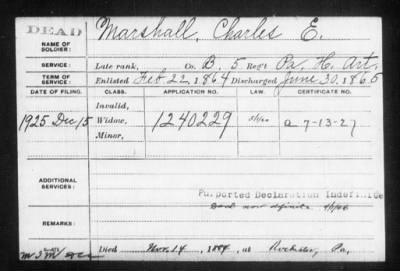 DEAD
Marshall, Charles E.
NAME OF SOLDIER:
SERVICE: Late rank, Co. B, 5 Reg't Pa. H. Art.
TERM OF SERVICE: Enlisted Feb 22, 1864 Discharged June 30, 1865
DATE OF FILING. CLASS. APPLICATION NO. LAW. CERTIFICATE NO.
Invalid,
1925 Dec 15 Widow, 1240229 a 7-13-27
Minor,
ADDITIONAL SERVICES:
Purported Declaration Indefinite
REMARKS:
Died Nov. 14, 1884, at Rochester, Pa.